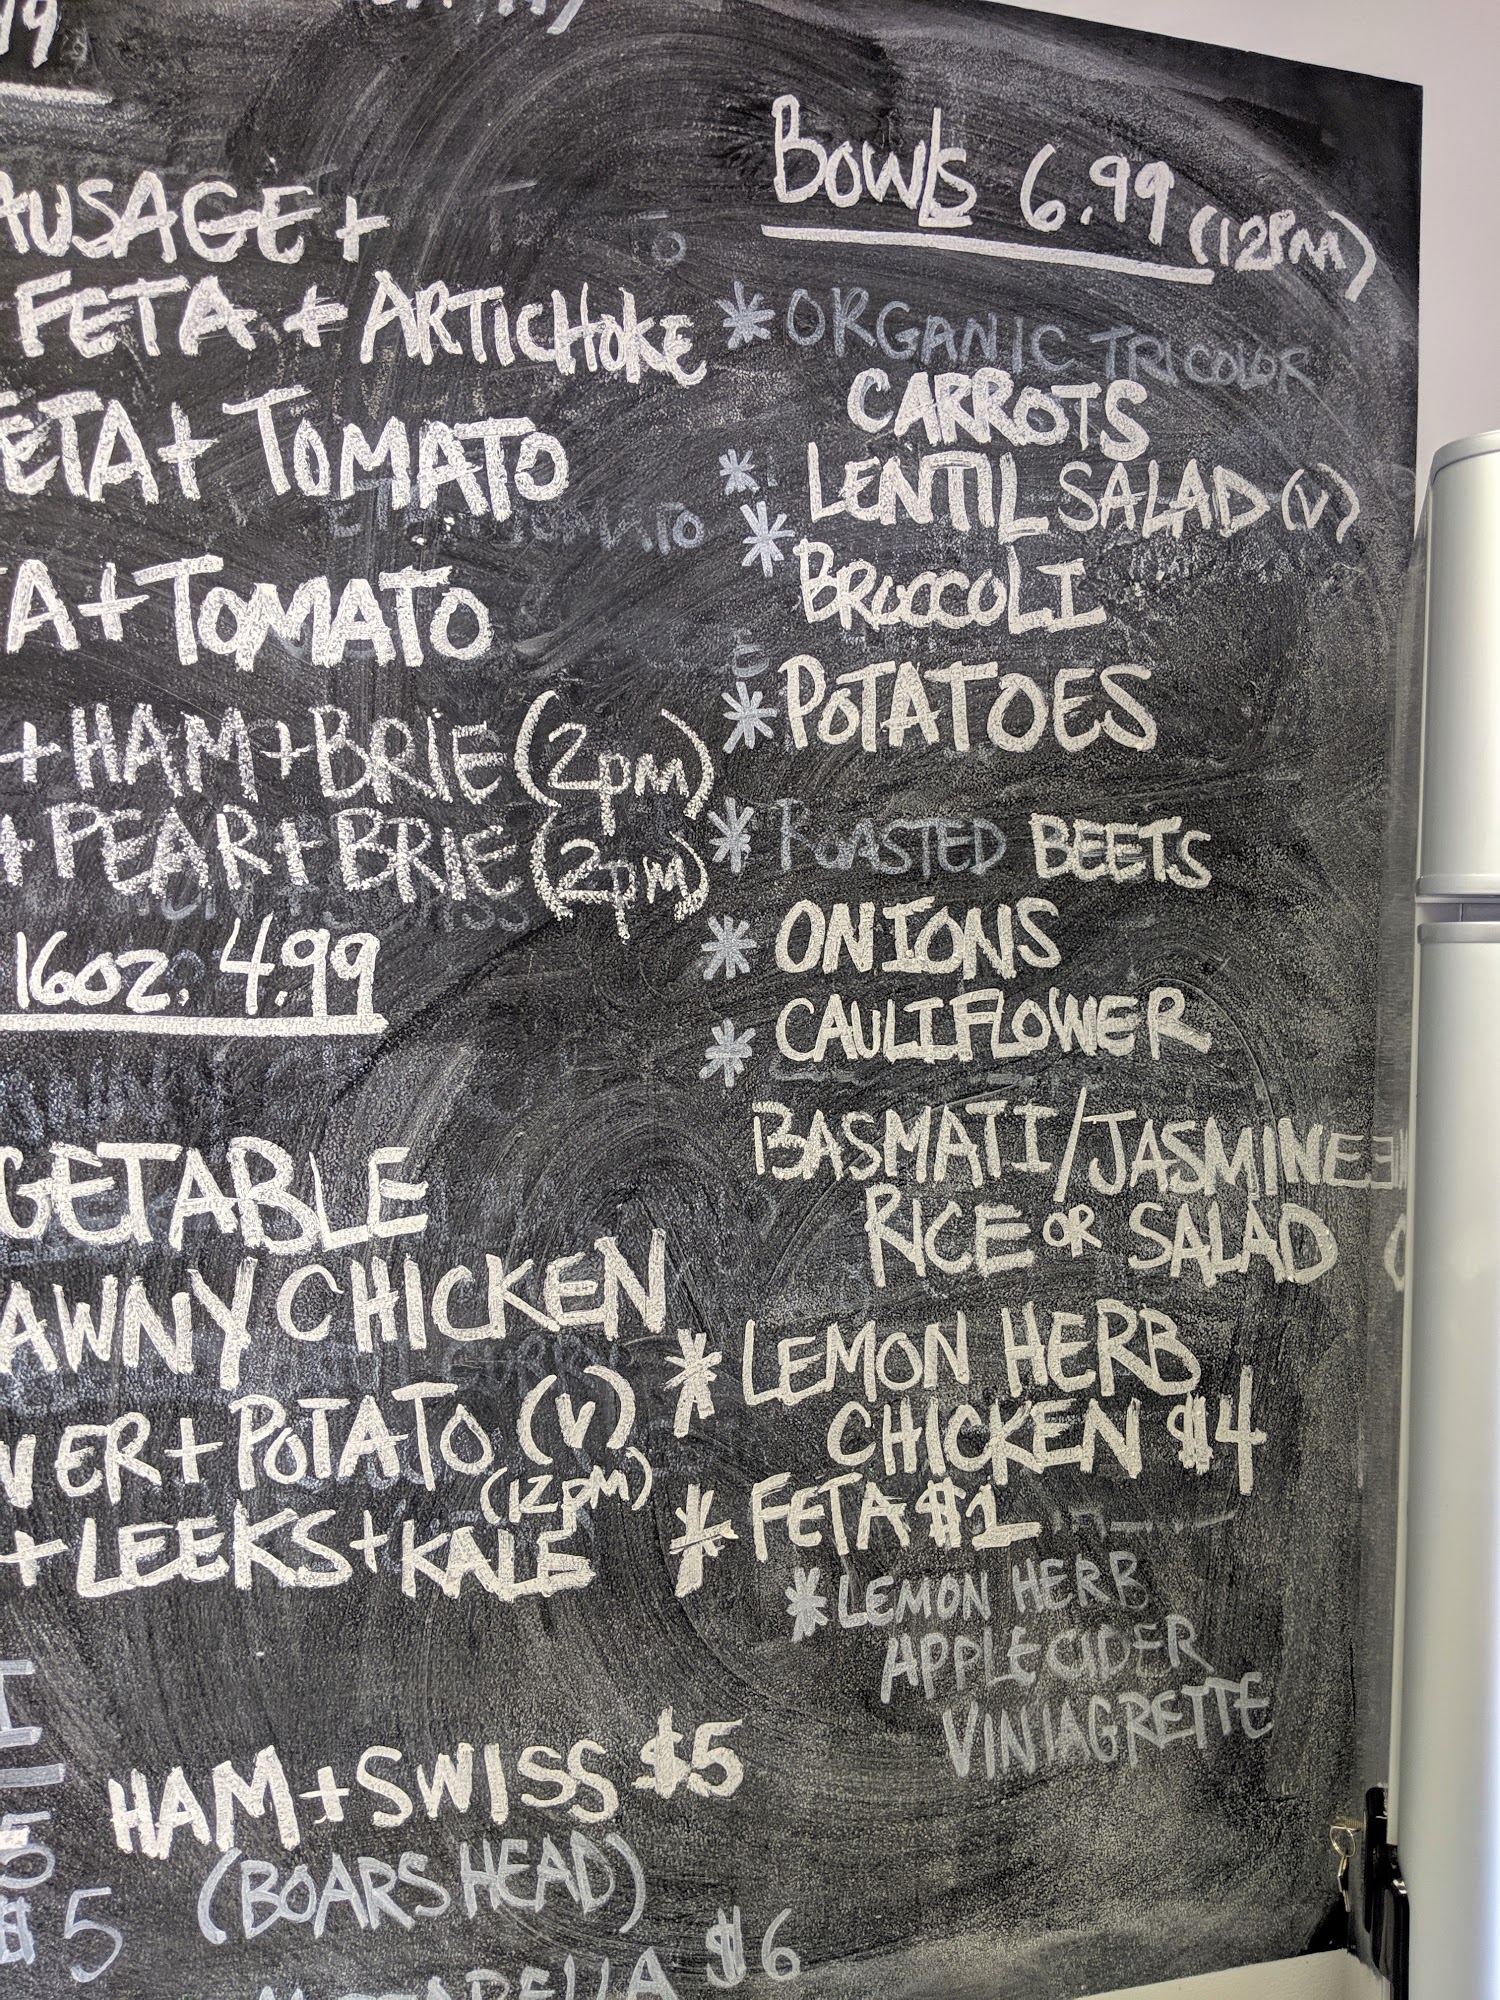 FETA + ARTICHOKE
+ TOMATO
A + TOMATO
+ HAM + BRIE (2pm)
+ PEAR + BRIE (2pm)
16oz. 4.99
CHICKEN
+ POTATO (V)
(12pm)
+ LEEKS + KALE
HAM + SWISS $5
(BOARS HEAD)
$5
$6
BOWLS 6.99 (12PM)
* ORGANIC TRICOLOR
CARROTS
* LENTIL SALAD (V)
* BROCCOLI
* POTATOES
* ROASTED BEETS
* ONIONS
* CAULIFLOWER
BASMATI/JASMINE
RICE OR SALAD
* LEMON HERB
CHICKEN $4
* FETA $1
* LEMON HERB
APPLE CIDER
VINIAGRETTE